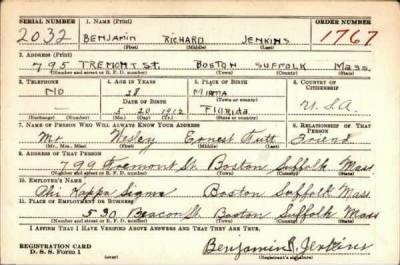 SERIAL NUMBER 1. NAME (Print) ORDER NUMBER
2032 BENJAMIN RICHARD JENKINS 1767
(First) (Middle) (Last)
2. ADDRESS (Print)
795 TREMONT ST. BOSTON SUFFOLK MASS
(Number and street or R. F. D. number) (Town) (County) (State)
3. TELEPHONE 4. AGE IN YEARS 5. PLACE OF BIRTH 6. COUNTRY OF CITIZENSHIP
NO 28 MIAMI
DATE OF BIRTH (Town or county)
5 20 1912 Florida U.S.A.
(Exchange) (Number) (Mo.) (Day) (Yr.) (State or country)
7. NAME OF PERSON WHO WILL ALWAYS KNOW YOUR ADDRESS 8. RELATIONSHIP OF THAT PERSON
Mr. Wesley Ernest Friend
(Mr., Mrs., Miss) (First) (Middle) (Last)
9. ADDRESS OF THAT PERSON
799 Tremont St. Boston Suffolk Mass
(Number and street or R. F. D. number) (Town) (County) (State)
10. EMPLOYER'S NAME
Phi Kappa Sigma Boston Suffolk Mass
11. PLACE OF EMPLOYMENT OR BUSINESS
530 Beacon St. Boston Suffolk Mass
(Number and street or R. F. D. number) (Town) (County) (State)
I AFFIRM THAT I HAVE VERIFIED ABOVE ANSWERS AND THAT THEY ARE TRUE.
REGISTRATION CARD
D. S. S. Form 1 (over) Benjamin R. Jenkins
(Registrant's signature)